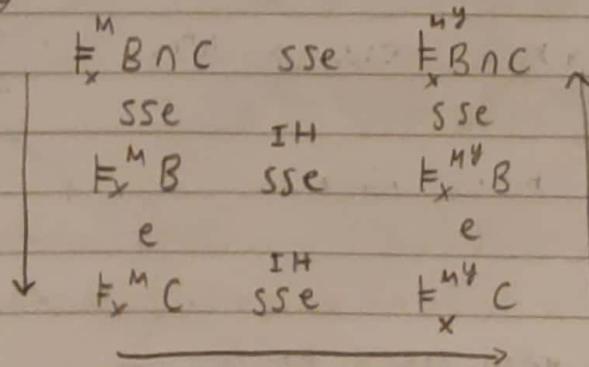 ⊨ₓᴹ B ∩ C sse ⊨ₓᴹʸ B ∩ C
sse sse
IH
⊨ₓᴹ B sse ⊨ₓᴹʸ B
e e
IH
⊨ₓᴹ C sse ⊨ₓᴹʸ C